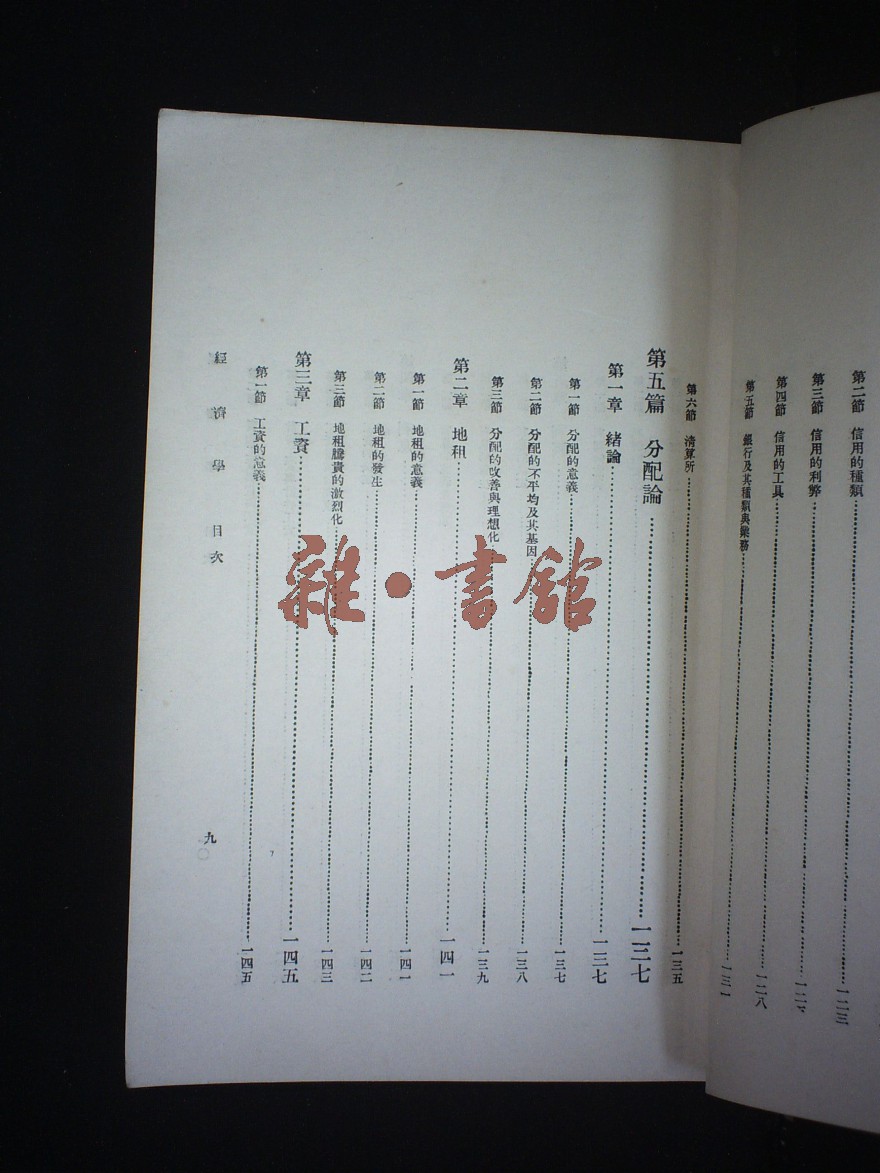 第二節 信用的種類……一二三
第三節 信用的利弊……一二
第四節 信用的工具……一二八
第五節 銀行及其種類與業務……一三一
第六節 清算所……一三五
第五篇 分配論……一三七
第一章 緒論……一三七
第一節 分配的意義……一三七
第二節 分配的不平均及其基因……一三八
第三節 分配的改善與理想化……一三九
第二章 地租……一四一
第一節 地租的意義……一四一
第二節 地租的發生……一四二
第三節 地租騰貴的激烈化……一四三
第三章 工資……一四五
第一節 工資的意義……一四五
經濟學 目次 九
雜·書館